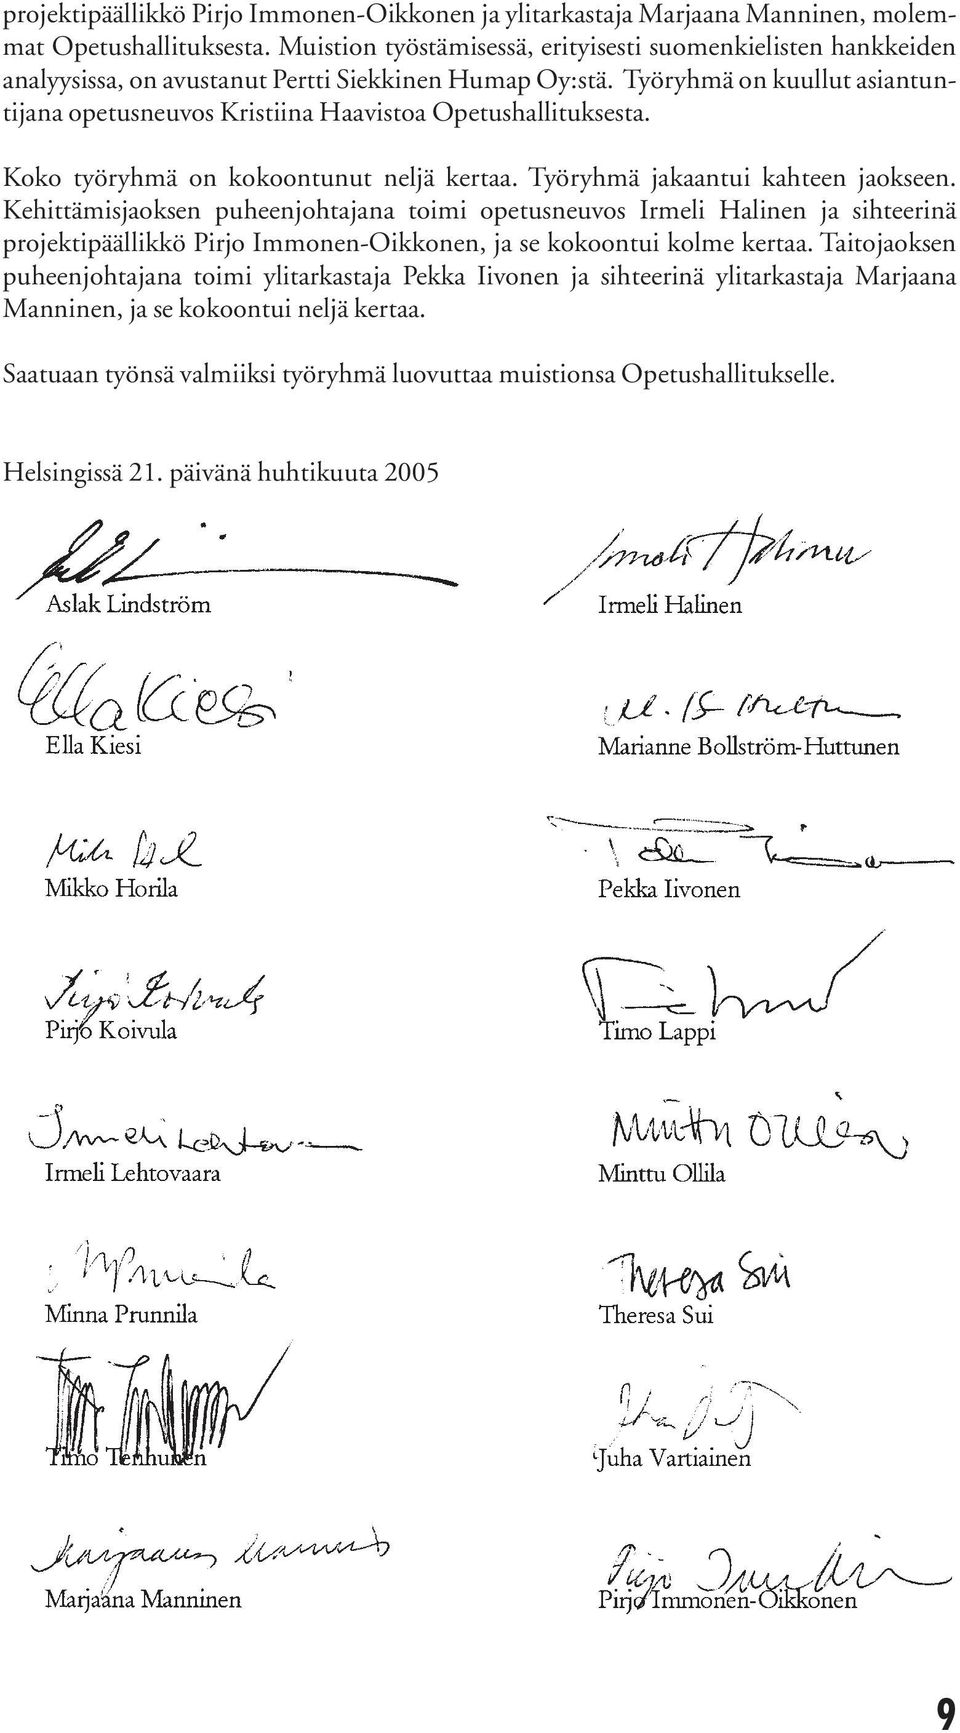 projektipäällikkö Pirjo Immonen-Oikkonen ja ylitarkastaja Marjaana Manninen, molem-
mat Opetushallituksesta. Muistion työstämisessä, erityisesti suomenkielisten hankkeiden
analyysissa, on avustanut Pertti Siekkinen Humap Oy:stä. Työryhmä on kuullut asiantun-
tijana opetusneuvos Kristiina Haavistoa Opetushallituksesta.
Koko työryhmä on kokoontunut neljä kertaa. Työryhmä jakaantui kahteen jaokseen.
Kehittämisjaoksen puheenjohtajana toimi opetusneuvos Irmeli Halinen ja sihteerinä
projektipäällikkö Pirjo Immonen-Oikkonen, ja se kokoontui kolme kertaa. Taitojaoksen
puheenjohtajana toimi ylitarkastaja Pekka Iivonen ja sihteerinä ylitarkastaja Marjaana
Manninen, ja se kokoontui neljä kertaa.
Saatuaan työnsä valmiiksi työryhmä luovuttaa muistionsa Opetushallitukselle.
Helsingissä 21. päivänä huhtikuuta 2005
Irmeli Halinen
Aslak Lindström Irmeli Halinen
Ella Kiesi
Ella Kiesi Marianne Bollström-Huttunen
Mikko Horila Pekka Iivonen
Pirjo Koivula
Pirjo Koivula Timo Lappi
Irmeli Lehtovaara Minttu Ollila
Irmeli Lehtovaara Minttu Ollila
Theresa Sui
Minna Prunnila Theresa Sui
Timo Tenhunen Juha Vartiainen
Marjaana Manninen
Marjaana Manninen Pirjo Immonen-Oikkonen
9